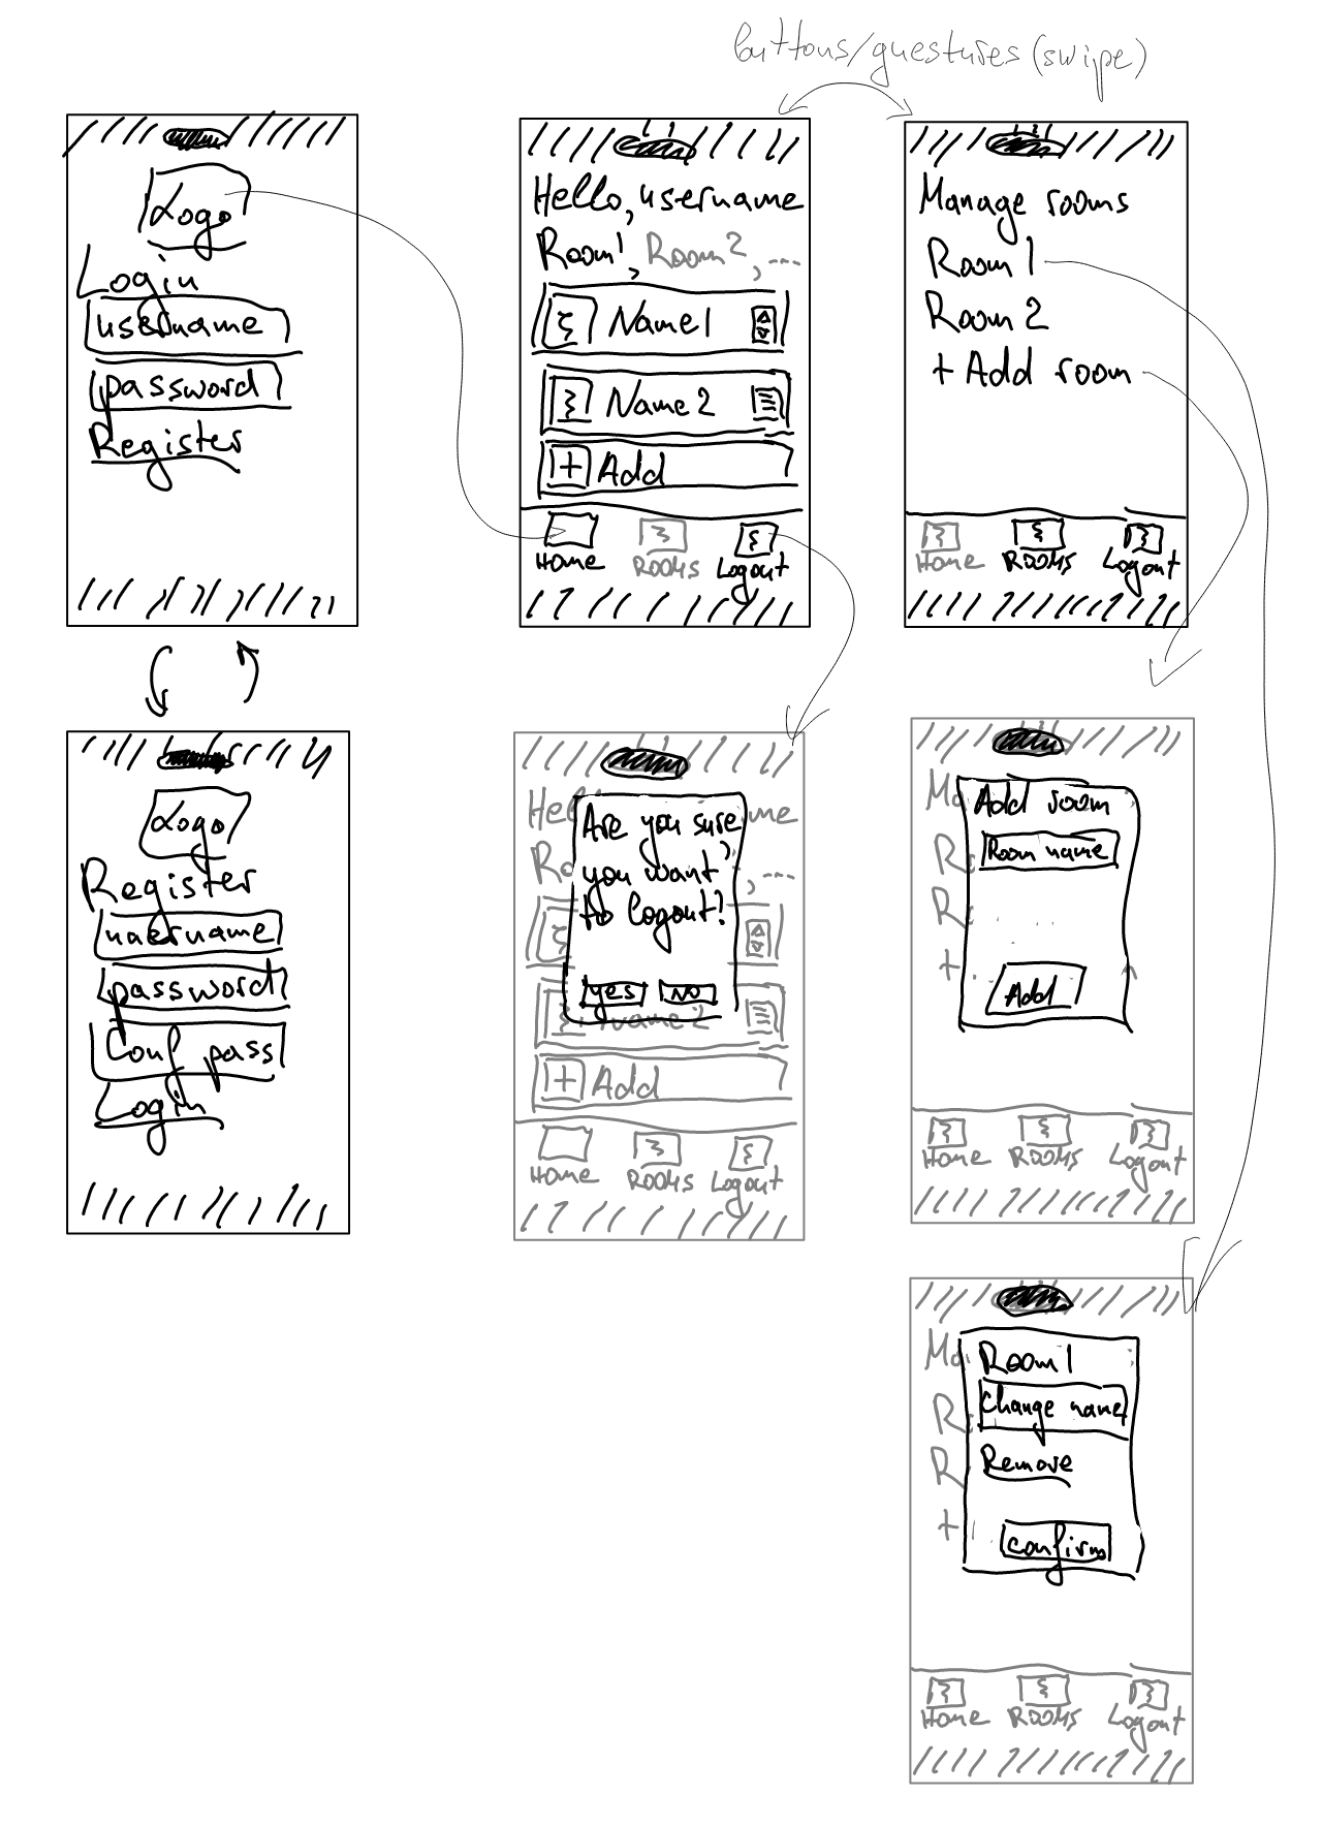 buttons/guestures (swipe)
Logo
Login
username
password
Register
Hello, username
Room1, Room2, ---
Name1
Name2
+ Add
Home
ROOMS
Logout
Manage rooms
Room1
Room2
+ Add room
Home
ROOMS
Logout
Logo
Register
username
password
Conf pass
Login
Hel me
Ro , ---
Are you sure
you want
to logout?
yes
No
name2
+ Add
Home
ROOMS
Logout
Ma
R
R
+
Add room
Room name
Add
Home
ROOMS
Logout
Ma
R
R
+
Room1
Change name
Remove
Confirm
Home
ROOMS
Logout